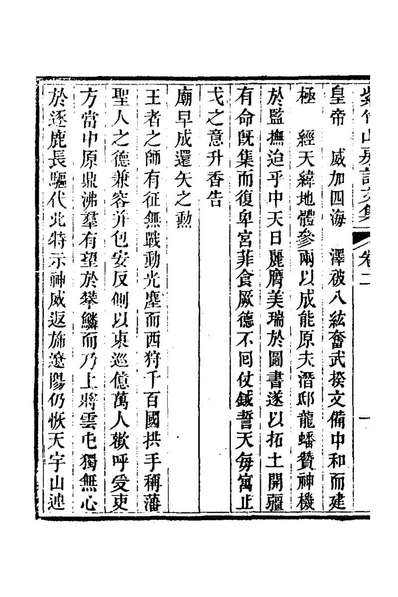 紫竹山房詩文集 卷二 一
皇帝 威加四海 澤被八紘奮武揆文備中和而建
極 經天緯地體參兩以成能原夫潛邸龍蟠贊神機
於監撫迨乎中天日麗膺美瑞於圖書遂以拓土開疆
有命旣集而復卑宮菲食厥德不回仗鉞誓天每寓止
戈之意升香告
廟早成還矢之勳
王者之師有征無戰動光塵而西狩千百國拱手稱藩
聖人之德兼容并包安反側以東巡億萬人歡呼受吏
方當中原鼎沸羣有望於攀鱗而乃上將雲屯獨無心
於逐鹿長驅代北特示神威返旆遼陽仍恢天宇山連